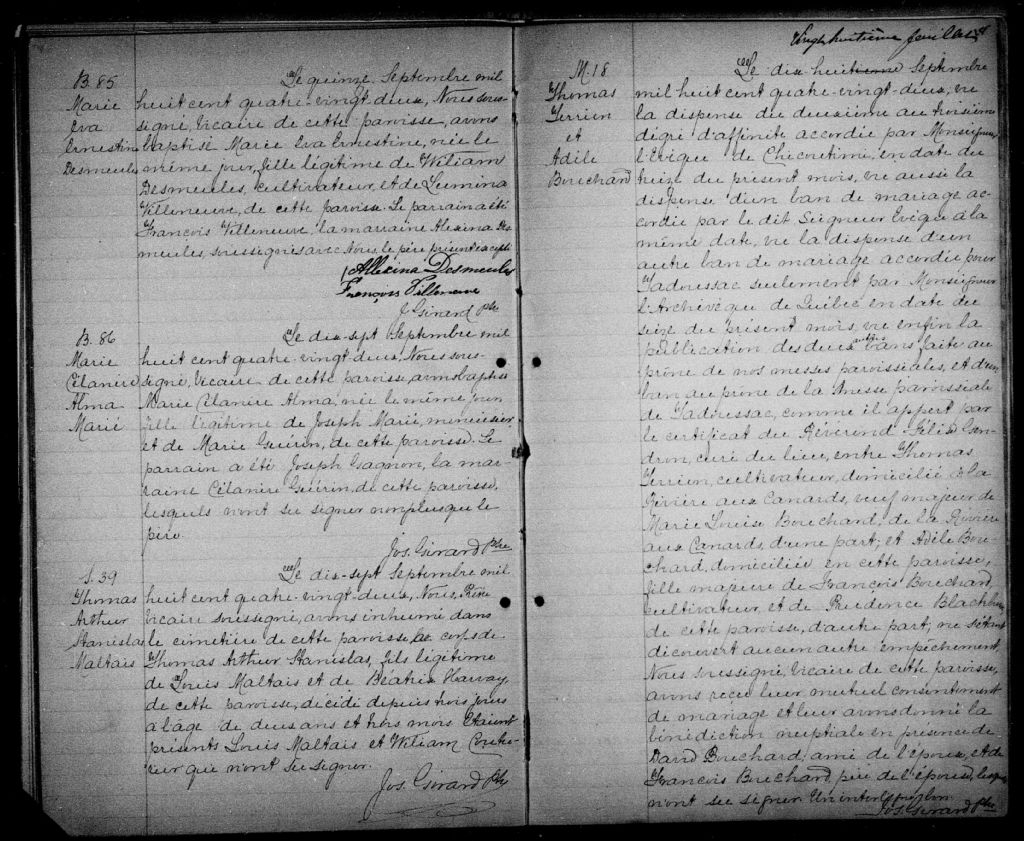 B. 85
Marie
Eva
Ernestine
Desmeules
Le quinze Septembre mil
huit cent quatre-vingt-deux, Nous sous-
signé, Vicaire de cette paroisse, avons
baptisé Marie Eva Ernestine, née le
même jour, fille légitime de William
Desmeules, cultivateur, et de Lumina
Villeneuve, de cette paroisse. Le parrain a été
François Villeneuve, la marraine Alexina Des-
meules, soussignés avec Nous, le père présent excepté
Allexina Desmeules
François Villeneuve
J. Girard Ptre
B. 86
Marie
Célanire
Alma
Marié
Le dix-sept Septembre mil
huit cent quatre-vingt-deux, Nous sous-
signé, Vicaire de cette paroisse, avons baptisé
Marie Célanire Alma, née le même jour,
fille légitime de Joseph Marié, menuisier
et de Marie Guérin, de cette paroisse. Le
parrain a été Joseph Gagnon, la mar-
raine Célanire Guérin, de cette paroisse,
lesquels n'ont su signer non plus que le
père.
Jos. Girard Ptre
S. 39
Thomas
Arthur
Stanislas
Maltais
Le dix-sept Septembre mil
huit cent quatre-vingt-deux, Nous, Ptre
Vicaire soussigné, avons inhumé dans
le cimetière de cette paroisse, le corps de
Thomas Arthur Stanislas, fils légitime
de Louis Maltais et de Beatrix Harvay,
de cette paroisse, décédé depuis trois jours
à l'âge de deux ans et trois mois. Etaient
présents Louis Maltais et William Coutu-
rier qui n'ont su signer.
Jos. Girard Ptre
Vingt huitième feuillet
M. 18
Thomas
Terrien
et
Adile
Bouchard
Le dix-huitième Septembre
mil huit cent quatre-vingt-deux, vu
la dispense du deuxième au troisième
dégré d'affinité accordée par Monseigneur
l'Evêque de Chicoutimi, en date du
treize du présent mois, vu aussi la
dispense d'un ban de mariage ac-
cordée par le dit Seigneur Evêque à la
même date, vu la dispense d'un
autre ban de mariage accordée pour
Tadoussac seulement par Monseigneur
l'Archevêque de Québec en date du
seize du présent mois, vu enfin la
publication des deux autres bans faite au
prône de nos messes paroissiales, et d'un
ban au prône de la Messe paroissiale
de Tadoussac, comme il appert par
le certificat du Révérend Félix Gen-
dron, curé du lieu, entre Thomas
Terrien, cultivateur, domicilié à la
Rivière aux Canards, veuf majeur de
Marie Louise Bouchard, de la Rivière
aux Canards, d'une part; et Adile Bou-
chard, domiciliée en cette paroisse,
fille majeure de François Bouchard,
cultivateur, et de Prudence Blackburn
de cette paroisse, d'autre part; ne s'étant
découvert aucun autre empêchement,
Nous soussigné, Vicaire de cette paroisse,
avons reçu leur mutuel consentement
de mariage et leur avons donné la
bénédiction nuptiale en présence de
David Bouchard, ami de l'époux, et de
François Bouchard, père de l'épouse, lesquels
n'ont su signer. Un interligne bon.
Jos. Girard Ptre